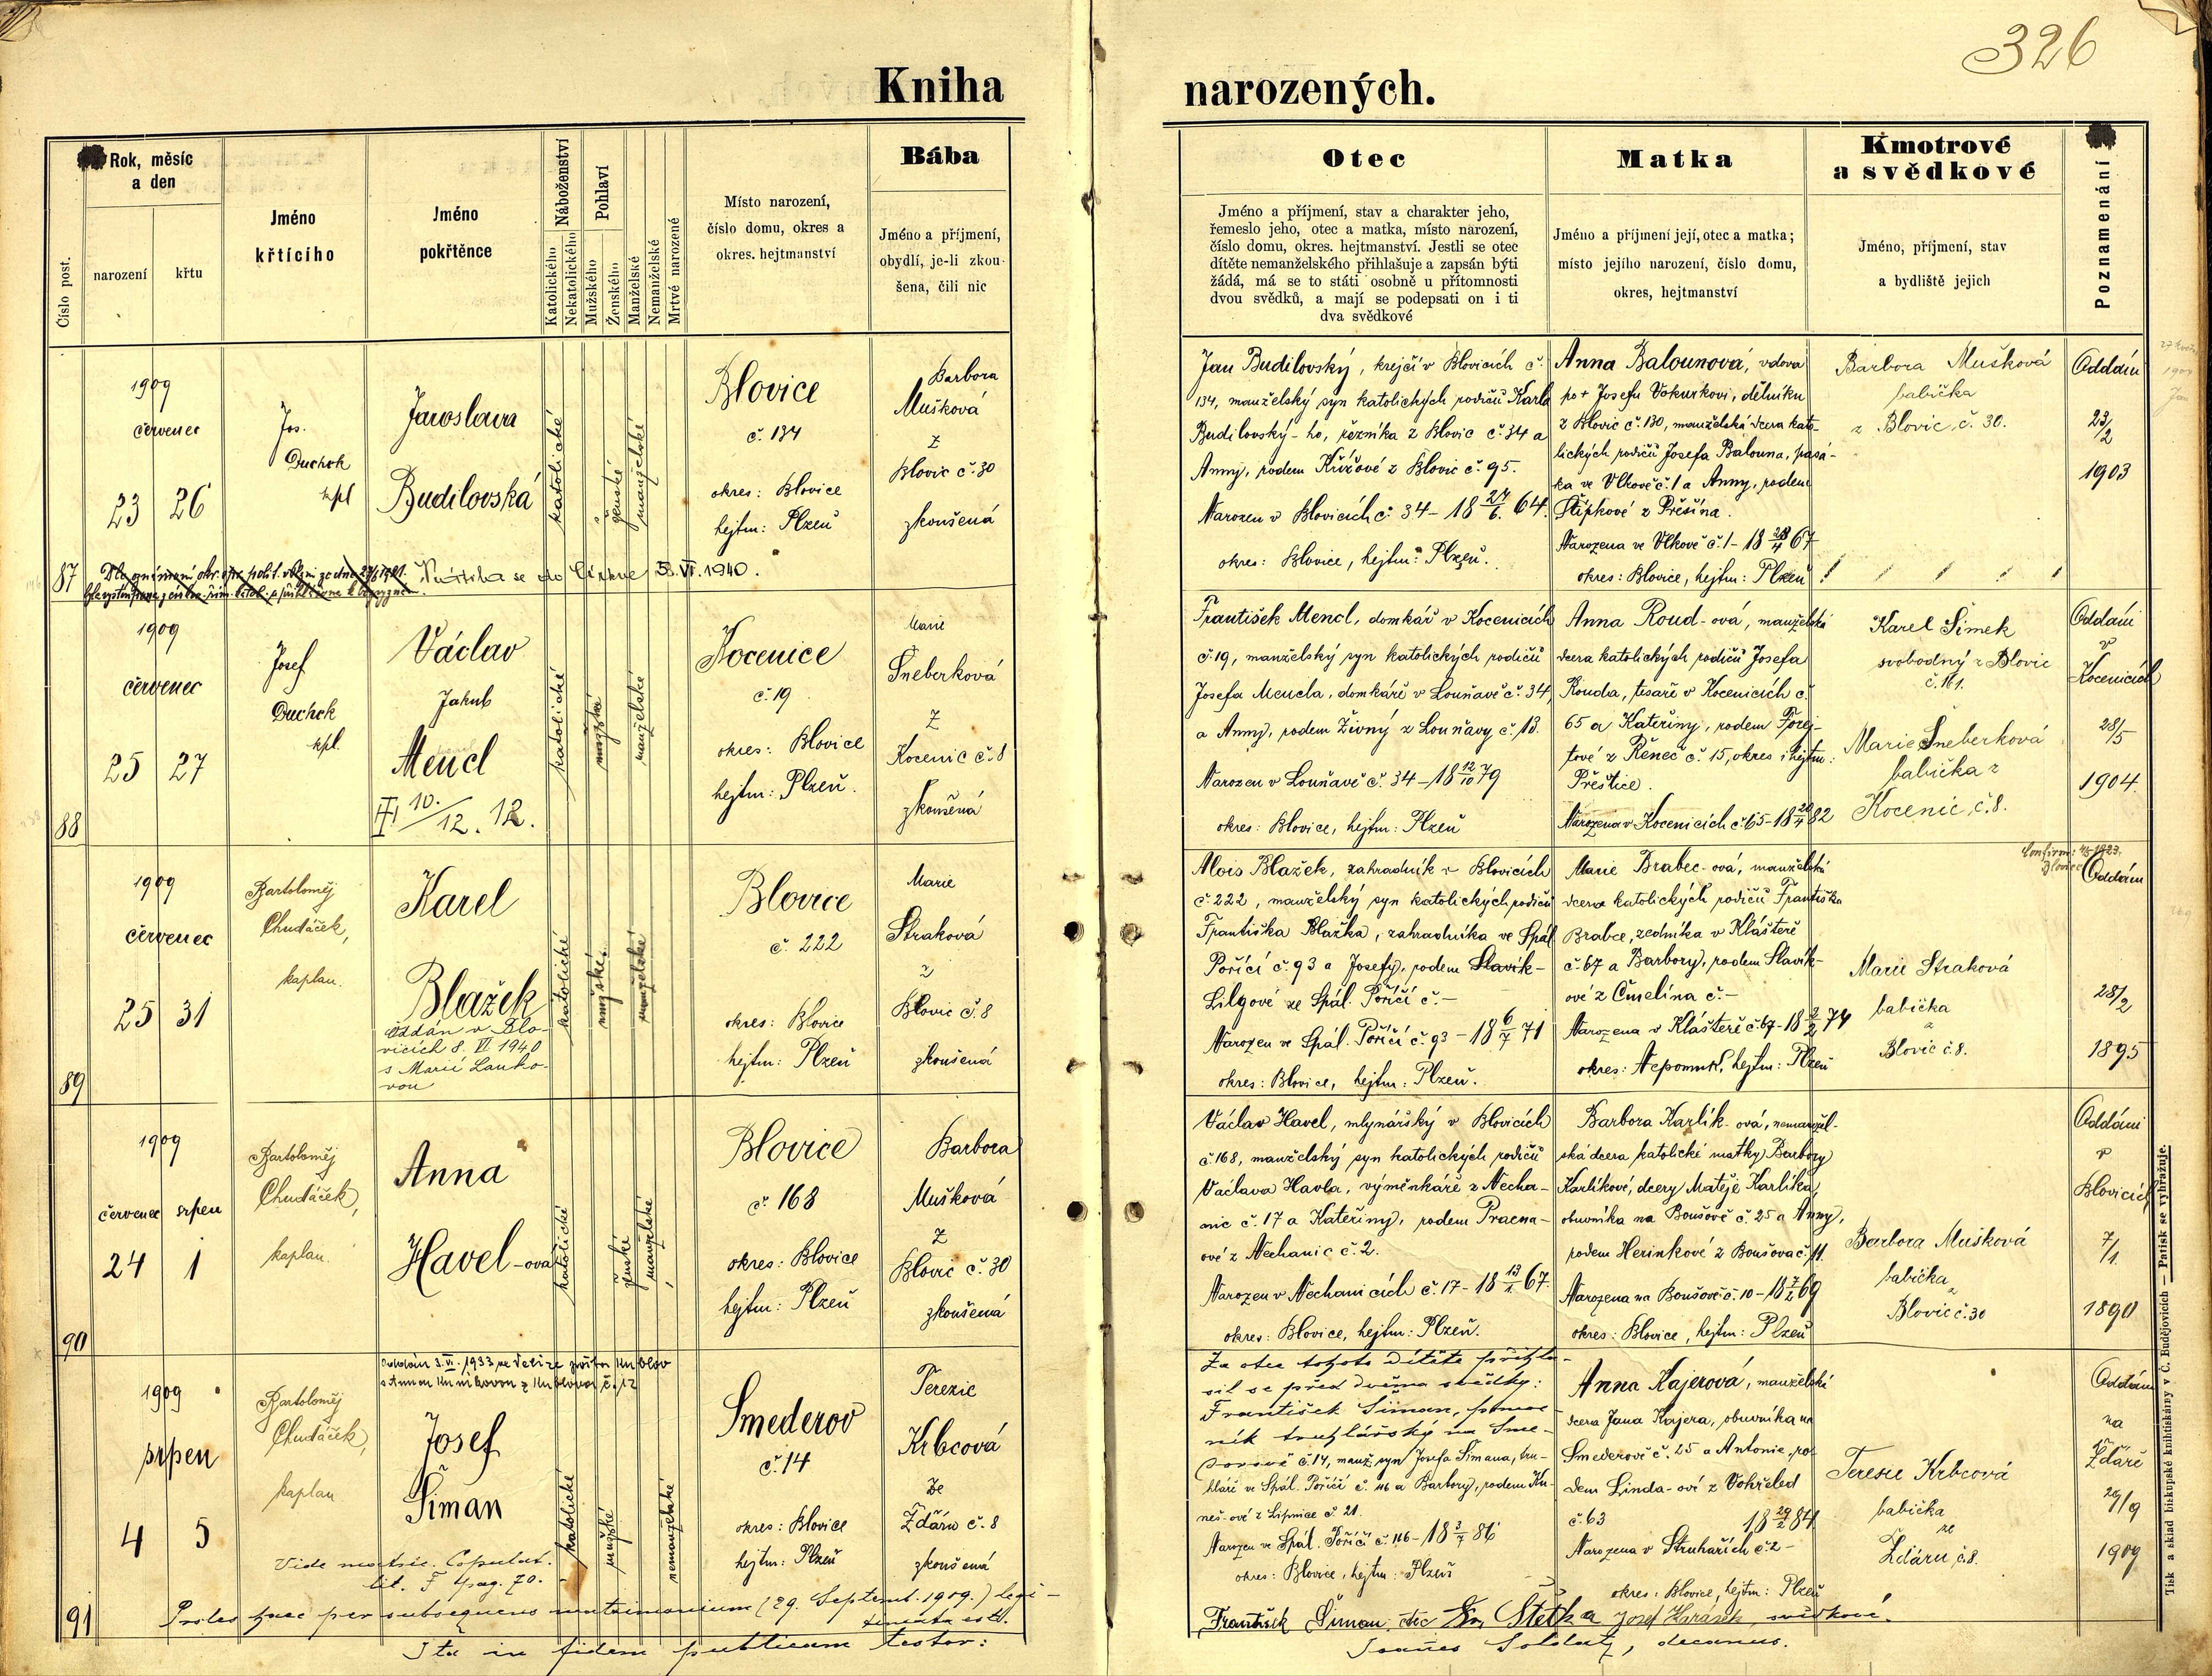 326
Kniha narozených.
Číslo post.
Rok, měsíc
a den
narození
křtu
Jméno
křtícího
Jméno
pokřtěnce
Náboženství
Katolického
Nekatolického
Pohlaví
Mužského
Ženského
Manželské
Nemanželské
Mrtvé narozené
Místo narození,
číslo domu, okres a
okres. hejtmanství
Bába
Jméno a příjmení,
obydlí, je-li zkou-
šena, čili nic
Otec
Jméno a příjmení, stav a charakter jeho,
řemeslo jeho, otec a matka, místo narození,
číslo domu, okres. hejtmanství. Jestli se otec
dítěte nemanželského přihlašuje a zapsán býti
žádá, má se to státi osobně u přítomnosti
dvou svědků, a mají se podepsati on i ti
dva svědkové
Matka
Jméno a příjmení její, otec a matka;
místo jejího narození, číslo domu,
okres, hejtmanství
Kmotrové
a svědkové
Jméno, příjmení, stav
a bydliště jejich
Poznamenání
87
1909
červenec
23 26
Jos.
Duchek
kpl
Jaroslava
Budilovská
katolické
ženské
manželské
Blovice
č. 134
okres: Blovice
hejtm: Plzeň
Barbora
Mušková
z
Blovic č. 30
zkoušená
Navrátila se do církve 3. VI. 1940.
Jan Budilovský, krejčí v Blovicích č.
134, manželský syn katolických rodičů Karla
Budilovský-ho, řezníka z Blovic č. 34 a
Anny, rodem Křížové z Blovic č. 95.
Narozen v Blovicích č. 34 - 18 24/6. 64.
okres: Blovice, hejtm: Plzeň.
Anna Balounová, vdova
po + Josefu Vokurkovi, dělníku
z Blovic č. 130, manželská dcera kato-
lických rodičů Josefa Balouna, pasá-
ka ve Vlkově č. 1 a Anny, rodem
Štípkové z Přešína.
Narozena ve Vlkově č. 1 - 18 28/4 67
okres: Blovice, hejtm: Plzeň
Barbora Mušková
babička
z Blovic, č. 30.
Oddáni
23/2
1903
88
1909
červenec
25 27
Josef
Duchek
kpl.
Václav
Jakub
Mencl
10./12. 12.
katolické
mužské
manželské
Kocenice
č. 19
okres: Blovice
hejtm: Plzeň.
Marie
Šneberková
z
Kocenic č. 8
zkoušená
František Mencl, domkář v Kocenicích
č 19, manželský syn katolických rodičů
Josefa Mencla, domkáře v Louňavě č. 34,
a Anny, rodem Živný z Louňavy č. 13.
Narozen v Louňavě č. 34 - 18 12/10 79
okres: Blovice, hejtm: Plzeň
Anna Roud-ová, manželská
dcera katolických rodičů Josefa
Rouda, tesaře v Kocenicích č.
65 a Kateřiny, rodem Forej-
tové z Řeneč č. 15, okres i hejtm:
Přeštice.
Narozena v Kocenicích č. 65 - 18 20/4 82
Karel Šimek
svobodný z Blovic
č. 161.
Marie Šneberková
babička z
Kocenic, č. 8.
Oddáni
v
Kocenicích
28/5
1904.
89
1909
červenec
25 31
Bartoloměj
Chudáček,
kaplan.
Karel
Blažek
Oddán v Blo-
vicích 8. VI 1940
s Marií Lauko-
vou
katolické
mužské.
manželské
Blovice
č. 222
okres: Blovice
hejtm: Plzeň
Marie
Straková
z
Blovic č. 8
zkoušená
Alois Blažek, zahradník v Blovicích
č 222, manželský syn katolických rodičů
Františka Blažka, zahradníka ve Spál.
Poříčí č. 93 a Josefy, rodem Slavík-
Lilgové ze Spál. Poříčí č. -
Narozen ve Spál. Poříčí č. 93 - 18 6/7 71
okres: Blovice, hejtm: Plzeň.
Marie Brabec-ová, manželská
dcera katolických rodičů Františka
Brabce, zedníka v Klášteře
č. 67 a Barbory, rodem Slavík-
ové z Čmelína č. -
Narozena v Klášteře č. 67 - 18 2/2 74
okres: Nepomuk, hejtm: Plzeň
Marie Straková
babička
z
Blovic č. 8.
Oddáni
28/2
1895
90
1909
červenec srpen
24 1
Bartoloměj
Chudáček,
kaplan.
Anna
Havel-ová
katolické
ženské
manželské
Blovice
č. 168
okres: Blovice
hejtm: Plzeň
Barbora
Mušková
z
Blovic č. 30
zkoušená
Václav Havel, mlynářský v Blovicích
č. 168, manželský syn katolických rodičů
Václava Havla, výměnkáře z Necha-
nic č. 17 a Kateřiny, rodem Pracna-
ové z Nechanic č. 2.
Narozen v Nechanicích č. 17 - 18 13/1. 67.
okres: Blovice, hejtm: Plzeň.
Barbora Karlík-ová, nemanžel-
ská dcera katolické matky Barbory
Karlíkové, dcery Matěje Karlíka,
obuvníka na Boušově č. 25 a Anny,
rodem Herinkové z Boušova č. 11.
Narozena na Boušově č. 10 - 18 7/2 69
okres: Blovice, hejtm: Plzeň
Barbora Mušková
babička
z
Blovic č. 30
Oddáni
v
Blovicích
7/1.
1890
91
1909
srpen
4 5
Bartoloměj
Chudáček,
kaplan
Josef
Šiman
katolické
mužské
nemanželské
Smederov
č. 14
okres: Blovice
hejtm: Plzeň
Terezie
Krbcová
ze
Ždáru č. 8
zkoušená
Vide matric. Copulat.
lit. F pag. 70.
Proles haec per subsequens matrimonium (29. Septemb. 1909.) legi-
timata est.
Ita in fidem publicam testor:
Za otce tohoto dítěte přihlá-
sil se před dvěma svědky:
František Šiman, pomoc-
ník truhlářský na Sme-
derově č. 14, manž. syn Josefa Šimana, tru-
hláře ve Spál. Poříčí č. 46 a Barbory, rodem Ku-
neš-ové z Lipnice č. 21.
Narozen ve Spál. Poříčí č. 116 - 18 3/7 86
okres: Blovice, hejtm: Plzeň
Anna Kajerová, manželská
dcera Jana Kajera, obuvníka na
Smederově č. 25 a Antonie, ro-
dem Linda-ové z Vohřeled
č. 63 18 29/2 84
Narozena v Struhařích č. 2 -
okres: Blovice, hejtm: Plzeň
Teresie Krbcová
babička
ze
Ždáru č. 8.
Oddáni
na
Žďáře
29/9
1909
František Šiman, otec Štětka Josef Harásek, svědkové.
Joannes Soldát, decanus.
Tisk a sklad biskupské knihtiskárny v Č. Budějovicích — Patisk se vyhražuje.